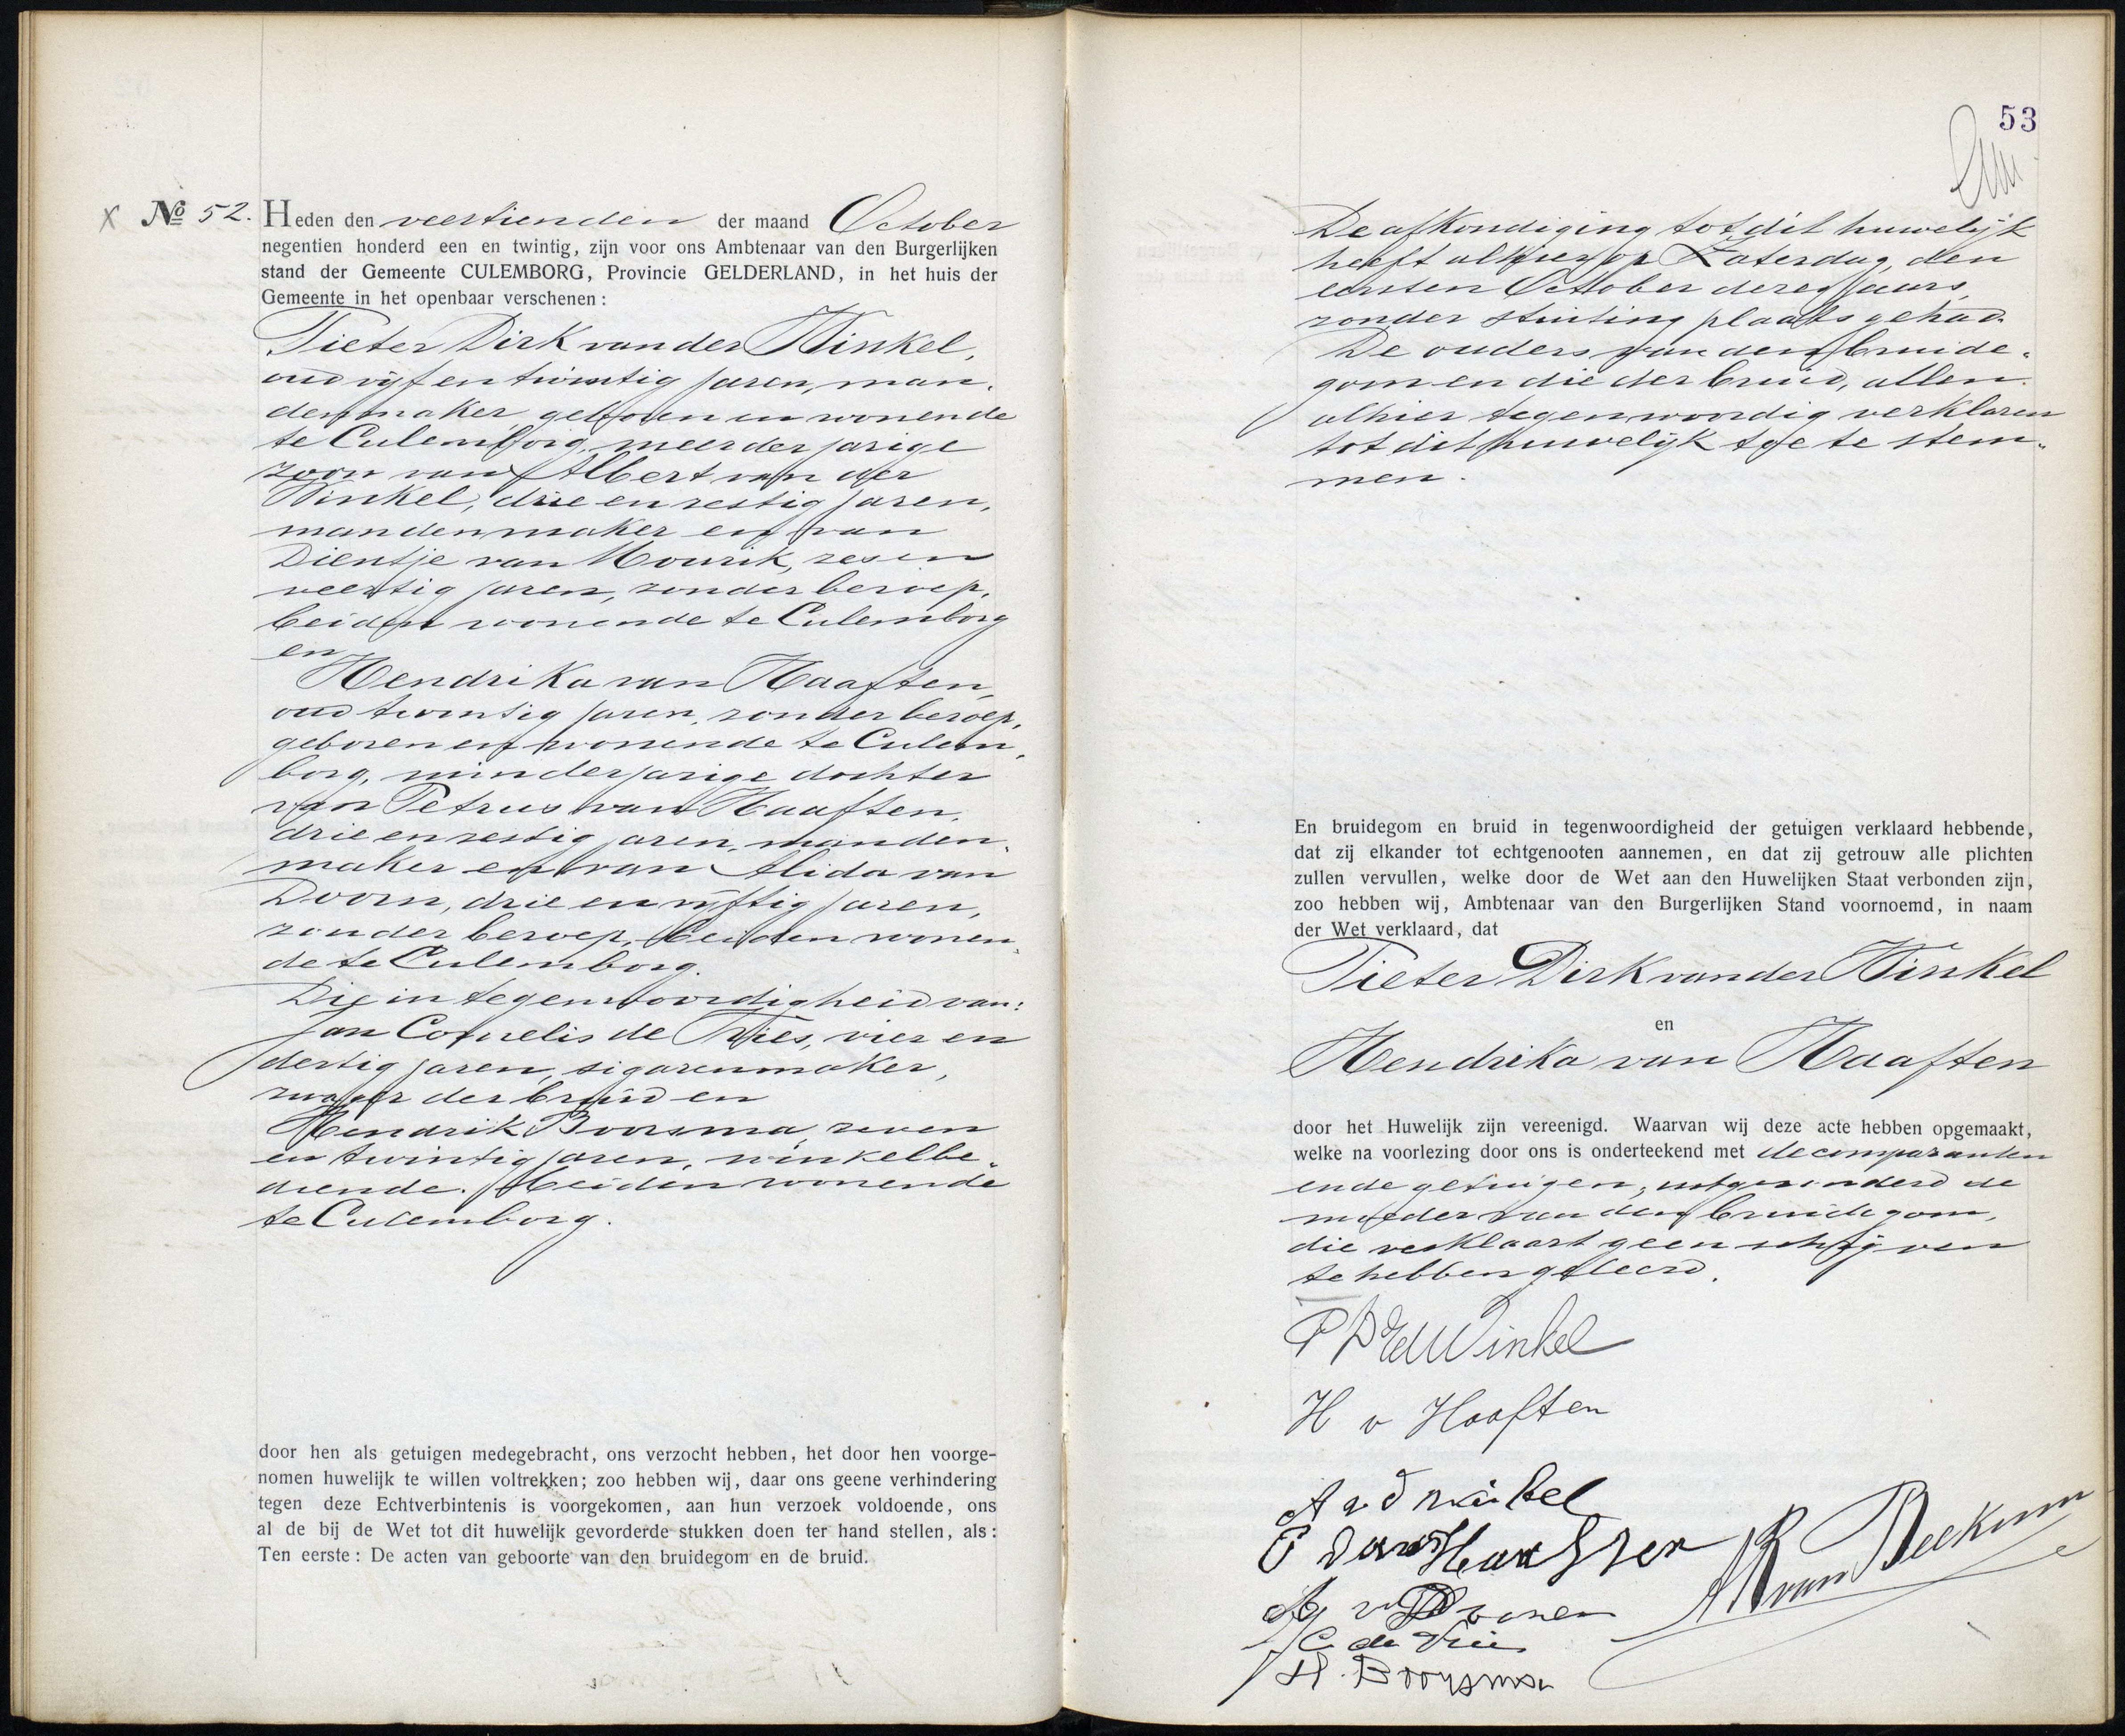 № 52. Heden den veertienden der maand October
negentien honderd een en twintig, zijn voor ons Ambtenaar van den Burgerlijken
stand der Gemeente CULEMBORG, Provincie GELDERLAND, in het huis der
Gemeente in het openbaar verschenen:
Pieter Dirk van der Winkel,
oud vijf en twintig jaren, man-
denmaker, geboren en wonende
te Culemborg, meerderjarige
zoon van Albert van der
Winkel, drie en zestig jaren,
mandenmaker en van
Dientje van Mourik, zes en
veertig jaren, zonder beroep,
beiden wonende te Culemborg
en
Hendrika van Haaften,
oud twintig jaren, zonder beroep,
geboren en wonende te Culem-
borg, minderjarige dochter
van Petrus van Haaften,
drie en zestig jaren, manden-
maker en van Alida van
Doorn, drie en vijftig jaren,
zonder beroep, beiden wonen-
de te Culemborg.
Die in tegenwoordigheid van:
Jan Cornelis de Vries, vier en
dertig jaren, sigarenmaker,
zwager der bruid en
Hendrik Boorsma, zeven
en twintig jaren, winkelbe-
diende. Beiden wonende
te Culemborg.
door hen als getuigen medegebracht, ons verzocht hebben, het door hen voorge-
nomen huwelijk te willen voltrekken; zoo hebben wij, daar ons geene verhindering
tegen deze Echtverbintenis is voorgekomen, aan hun verzoek voldoende, ons
al de bij de Wet tot dit huwelijk gevorderde stukken doen ter hand stellen, als:
Ten eerste: De acten van geboorte van den bruidegom en de bruid.
53
De afkondiging tot dit huwelijk
heeft alhier op Zaterdag, den
eersten October dezes jaars,
zonder stuiting plaats gehad.
De ouders van den bruide-
gom en die der bruid, allen
alhier tegenwoordig verklaren
tot dit huwelijk toe te stem-
men.
En bruidegom en bruid in tegenwoordigheid der getuigen verklaard hebbende,
dat zij elkander tot echtgenooten aannemen, en dat zij getrouw alle plichten
zullen vervullen, welke door de Wet aan den Huwelijken Staat verbonden zijn,
zoo hebben wij, Ambtenaar van den Burgerlijken Stand voornoemd, in naam
der Wet verklaard, dat
Pieter Dirk van der Winkel
en
Hendrika van Haaften
door het Huwelijk zijn vereenigd. Waarvan wij deze acte hebben opgemaakt,
welke na voorlezing door ons is onderteekend met de comparanten
en de getuigen, uitgezonderd de
moeder van den bruidegom,
die verklaart geen schrijven
te hebben geleerd.
P D vd Winkel
H v Haaften
A v d winkel
P van Haaften
van Beekum
J C de Vries
H. Boorsma